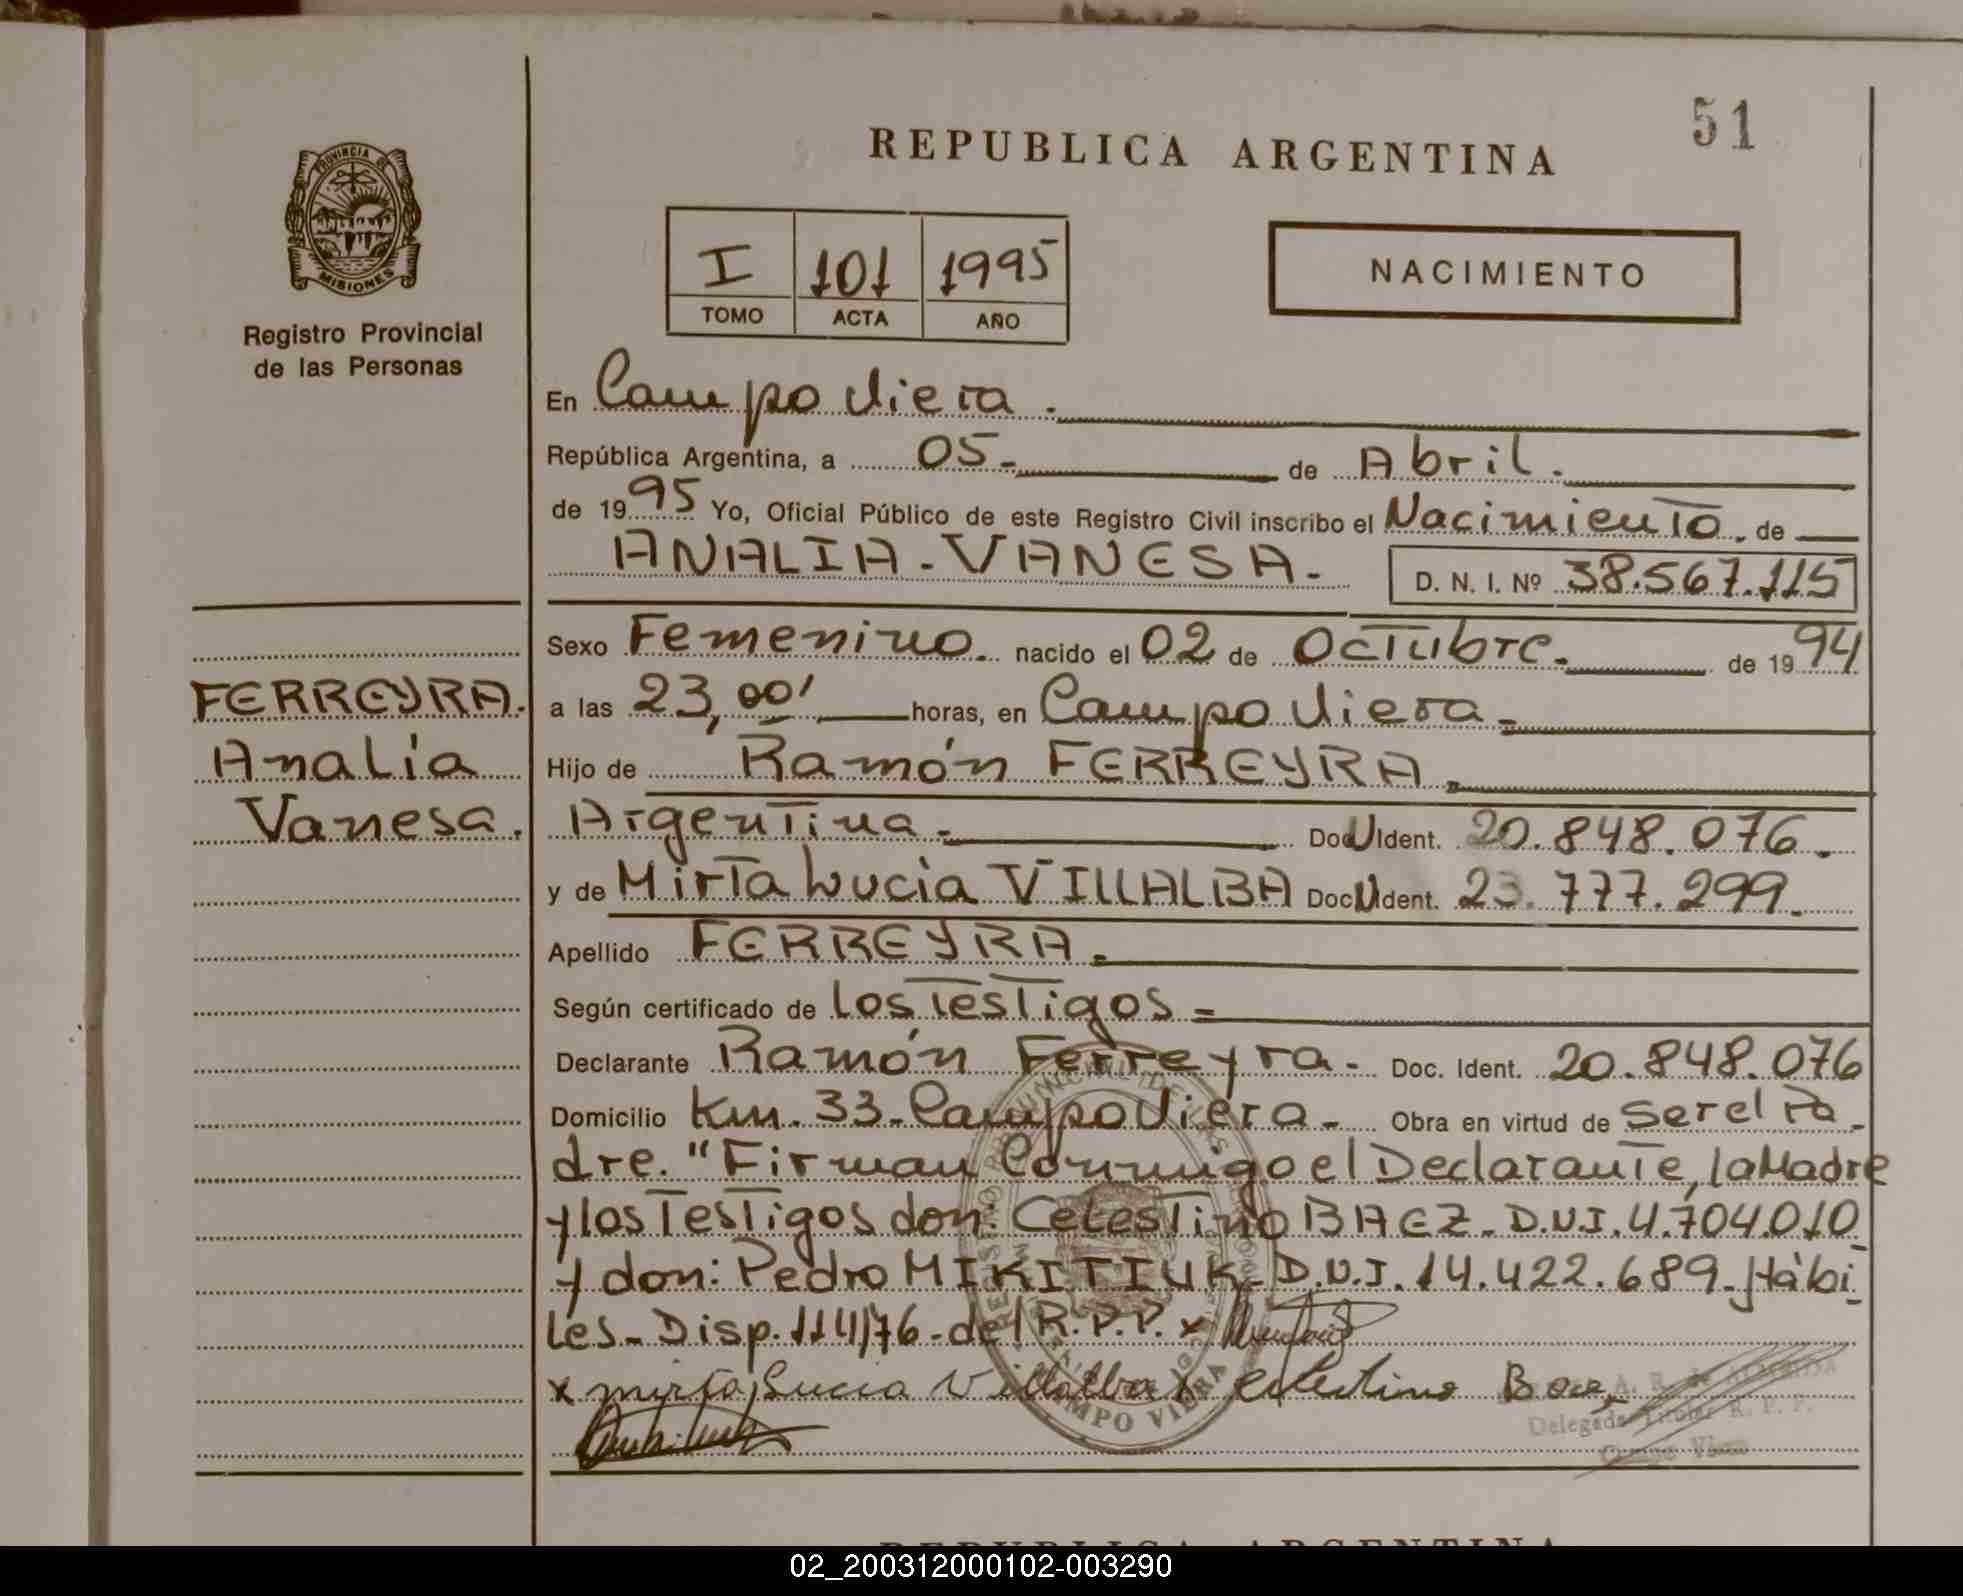 51
REPUBLICA ARGENTINA
PROVINCIA DE
MISIONES
Registro Provincial
de las Personas
I 101 1995
TOMO ACTA AÑO
NACIMIENTO
En Campo Viera.
República Argentina, a 05- de Abril.
de 1995 Yo, Oficial Público de este Registro Civil inscribo el Nacimiento. de
ANALIA-VANESA- D. N. I. Nº 38.567.115
Sexo Femenino. nacido el 02 de Octubre. de 1994
FERREYRA.
Analía
Vanesa.
a las 23,00' horas, en Campo Viera-
Hijo de Ramón FERREYRA.
Argentina- DocUIdent. 20.848.076.
y de Mirta Lucia VILLALBA DocUIdent. 23.777.299.
Apellido FERREYRA.
Según certificado de los Testigos=
Declarante Ramón Ferreyra. Doc. Ident. 20.848.076
Domicilio Km. 33-Campo Viera- Obra en virtud de Ser el Pa-
dre. "Firman Conmigo el Declarante, la Madre
y los Testigos don: Celestino BAEZ-D.N.I. 4.704.010
y don: Pedro MIKITIUK-D.N.I. 14.422.689-Hábi
les-Disp. 114/76-del R.P.P. x
x mirta Lucia Villalba x celestino Baez
CAMPO VIERA
A. R. de
Delegada Titular R. P. P.
Campo Viera
REPUBLICA ARGENTINA
02_200312000102-003290